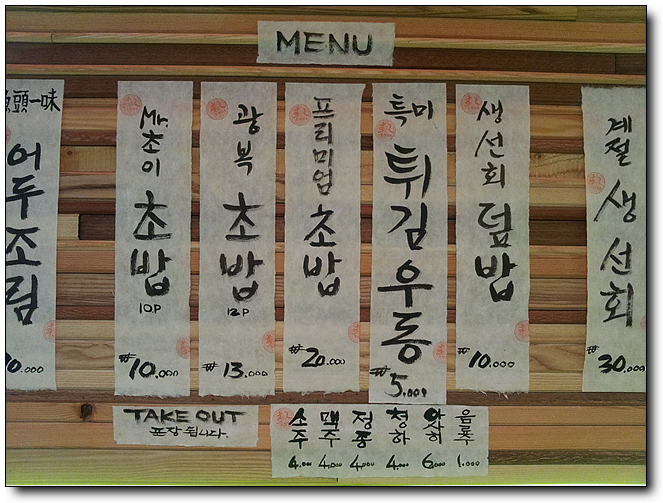 MENU
魚頭一味
어두조림
0.000
Mr. 초이
초밥
10P
₩10.000
광복
초밥
12P
₩13.000
프리미엄
초밥
₩20.000
특미
튀김우동
₩5.000
생선회
덮밥
₩10.000
계절
생선회
₩30.000
TAKE OUT
포장 됩니다.
소주 4.000
맥주 4.000
정종 4.000
청하 4.000
6.000
음료수 1.000